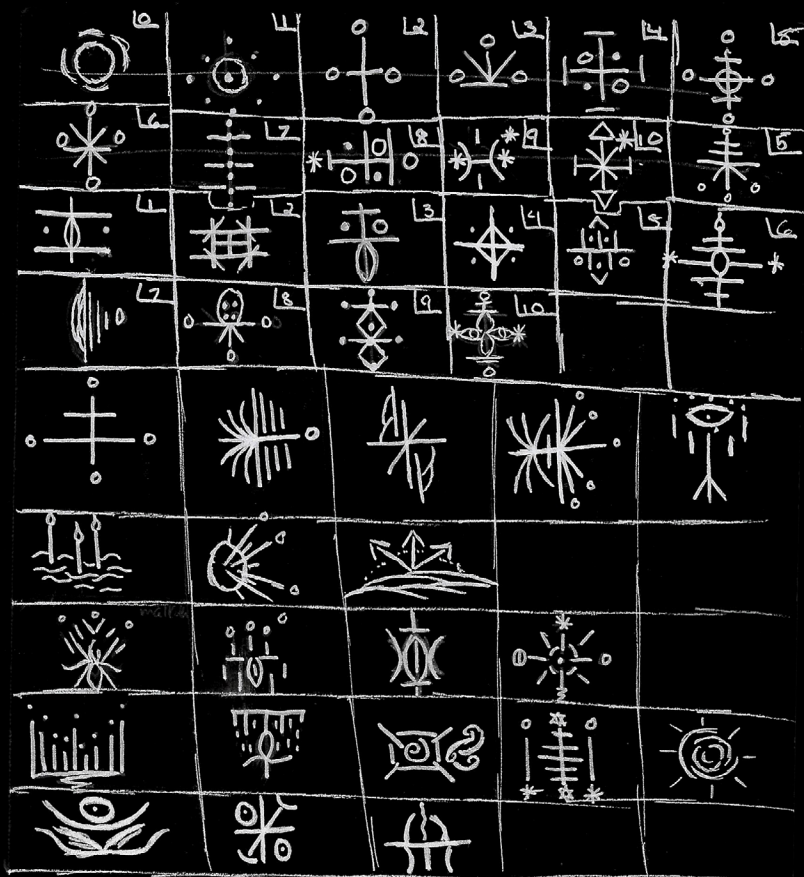 0 1 2 3 4 5
6 7 8 9 10 5
1 2 3 4 5 6
7 8 9 10